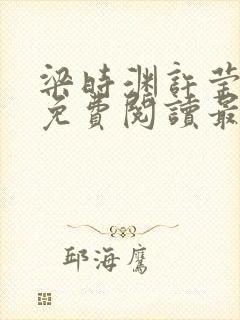 梁時渊許莹
免費閱讀最
邱海鷹